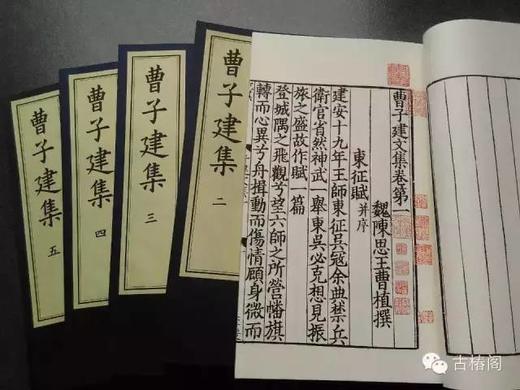 曹子建文集卷第一
魏陳思王曹植撰
東征賦 并序
建安十九年王師東征吳寇余典禁兵
衛官省然神武一舉東吳必克想見振
旅之盛故作賦一篇
登城隅之飛觀兮望六師之所營幡旗
轉而心異兮舟揖動而傷情顧身微而
曹子建集 二
曹子建集 三
曹子建集 四
曹子建集 五
古椿阁